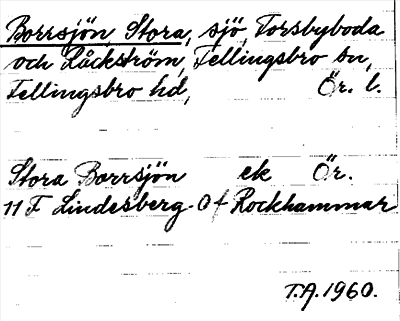 Borrsjön, Stora, sjö, Torsbyboda
och Råckström, Fellingsbro sn,
Fellingsbro hd, Ör. l.
Stora Borrsjön ek Ör.
11 F Lindesberg Of Rockhammar
T.A. 1960.